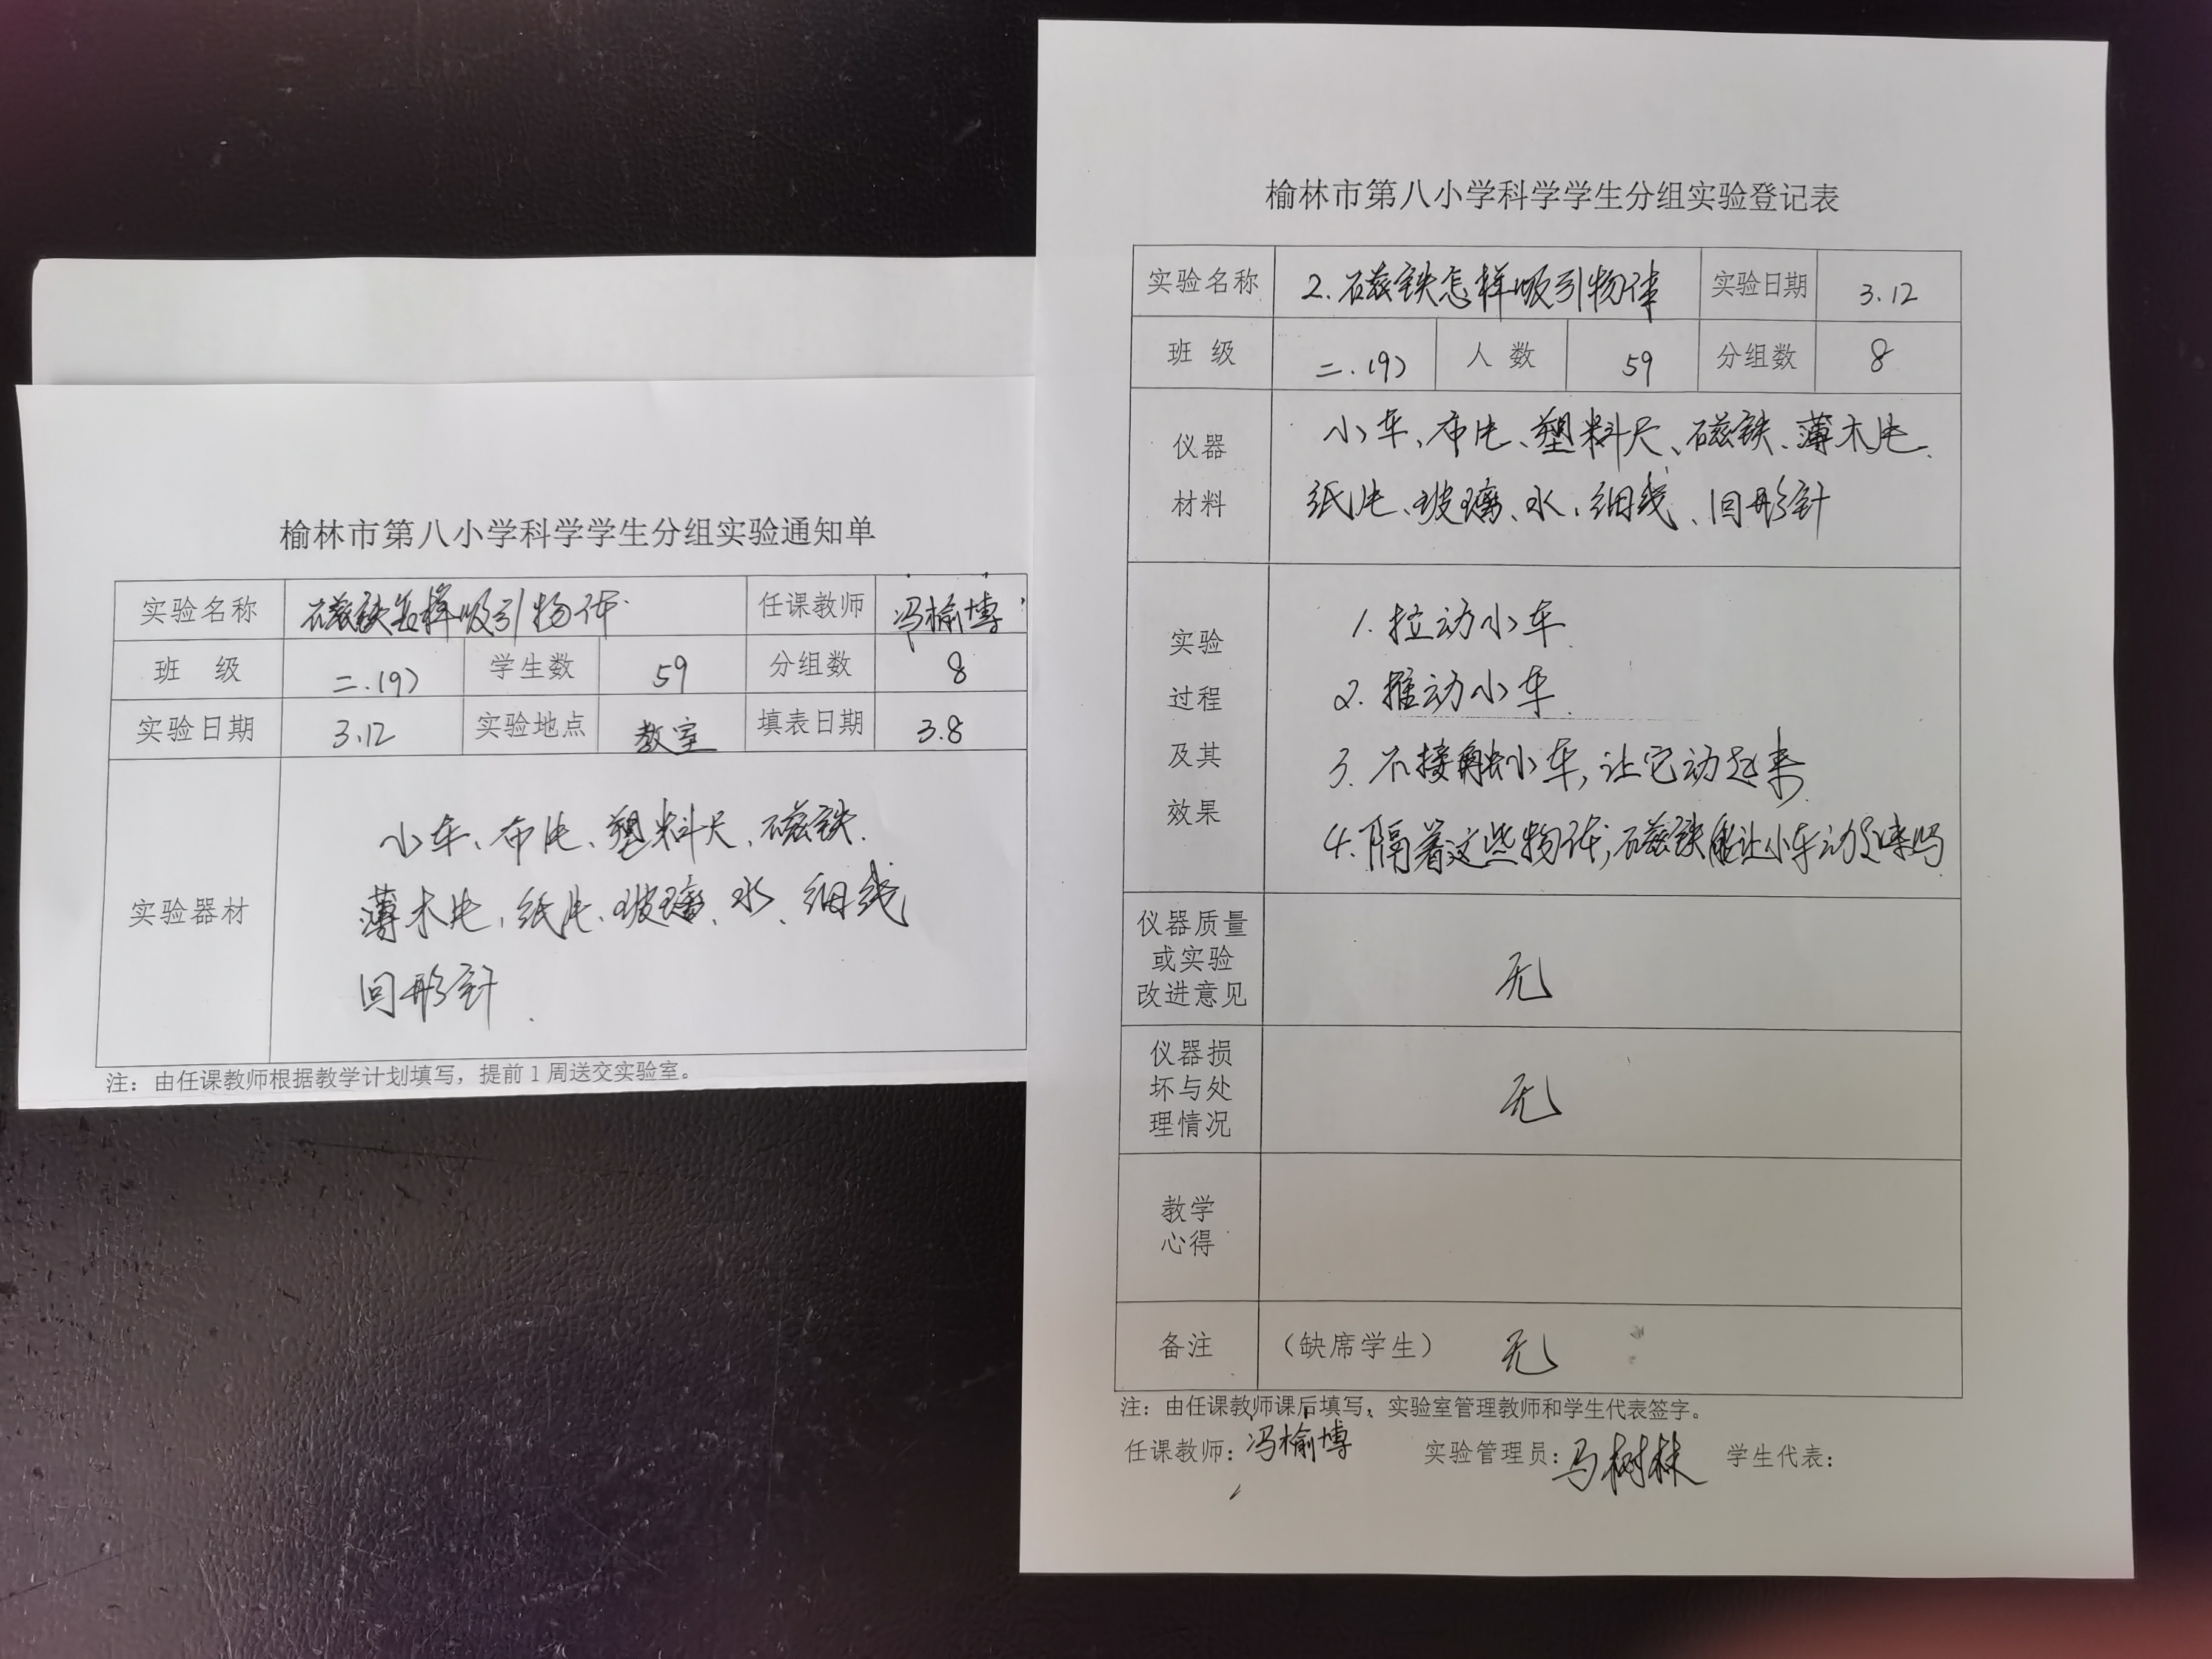 榆林市第八小学科学学生分组实验通知单
实验名称 磁铁怎样吸引物体 任课教师 冯榆博
班 级 二.(9) 学生数 59 分组数 8
实验日期 3.12 实验地点 教室 填表日期 3.8
实验器材
小车、布片、塑料尺、磁铁、
薄木片、纸片、玻璃、水、细线
回形针.
注：由任课教师根据教学计划填写，提前1周送交实验室。
榆林市第八小学科学学生分组实验登记表
实验名称 2.磁铁怎样吸引物体 实验日期 3.12
班 级 二.(9) 人 数 59 分组数 8
仪器
材料
小车、布片、塑料尺、磁铁、薄木片、
纸片、玻璃、水、细线、回形针
实验
过程
及其
效果
1.拉动小车
2.推动小车
3.不接触小车,让它动起来
4.隔着这些物体,磁铁能让小车动起来吗
仪器质量
或实验
改进意见
无
仪器损
坏与处
理情况
无
教学
心得
备注 （缺席学生） 无
注：由任课教师课后填写，实验室管理教师和学生代表签字。
任课教师：冯榆博 实验管理员：马树林 学生代表：